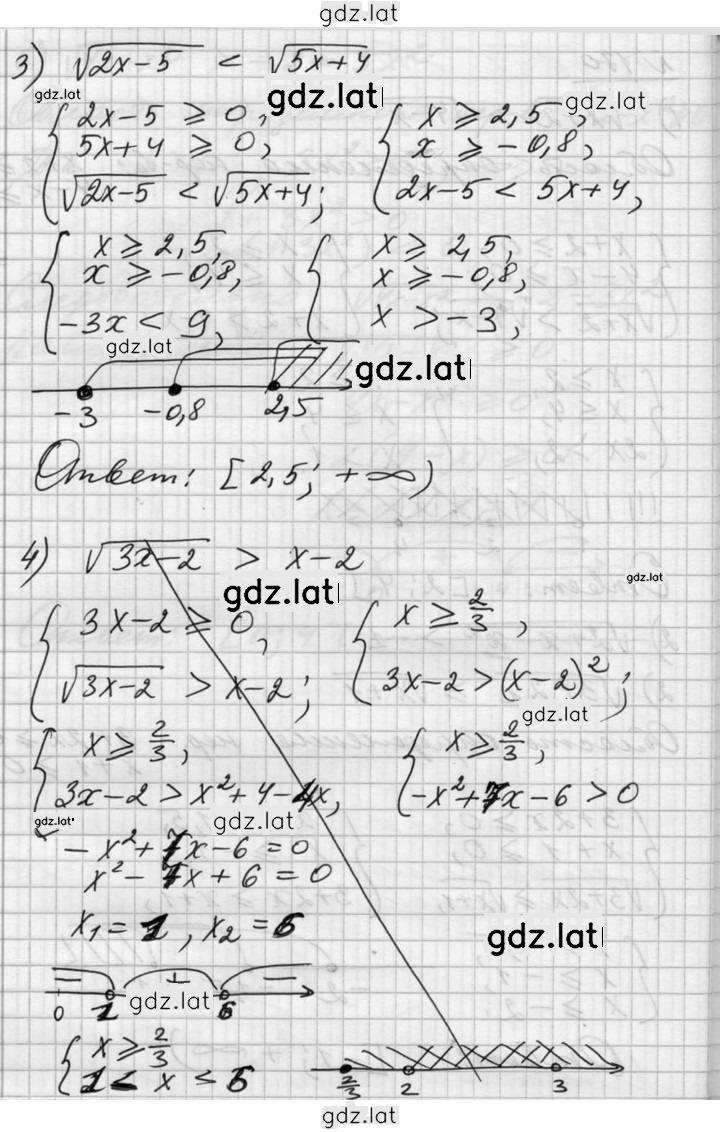 gdz.lat
3) √(2x-5) < √(5x+4)
gdz.lat
gdz.lat
gdz.lat
{ 2x-5 ≥ 0, { x ≥ 2,5,
5x+4 ≥ 0, x ≥ -0,8,
√(2x-5) < √(5x+4); 2x-5 < 5x+4,
{ x ≥ 2,5, { x ≥ 2,5,
x ≥ -0,8, x ≥ -0,8,
-3x < 9, x > -3,
gdz.lat
gdz.lat
-3 -0,8 2,5
Ответ: [2,5; +∞)
4) √(3x-2) > x-2
gdz.lat
gdz.lat
{ 3x-2 ≥ 0, { x ≥ 2/3,
√(3x-2) > x-2; 3x-2 > (x-2)²;
gdz.lat
{ x ≥ 2/3, { x ≥ 2/3,
3x-2 > x²+4-4x, -x²+7x-6 > 0
gdz.lat
gdz.lat
-x²+7x-6=0
x²-7x+6=0
x₁=1, x₂=6
gdz.lat
- + -
gdz.lat
0 1 6
{ x ≥ 2/3
1 < x < 6
2/3 2 3
gdz.lat